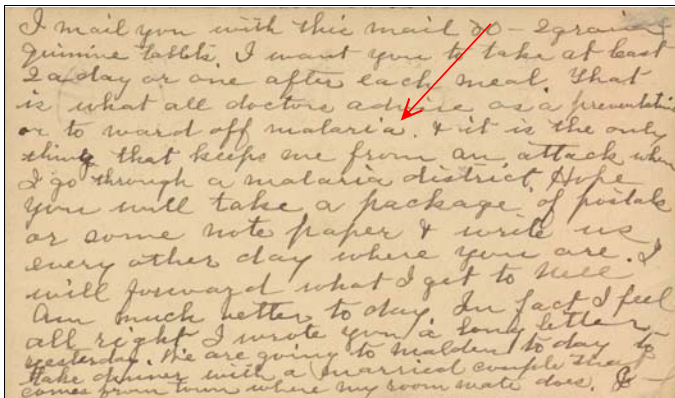 I mail you with this mail 20 - 2 grain
Quinine tablets. I want you to take at least
2 a day or one after each meal. That
is what all doctors advise as a preventative
or to ward off malaria. & it is the only
thing that keeps me from an attack when
I go through a malaria district. Hope
you will take a package of postals
or some note paper & write us
every other day where you are. I
will forward what I get to Nell
Am much better to day. In fact I feel
all right I wrote you a long letter
yesterday. We are going to Malden to day to
take dinner with a married couple that
comes from town where my room mate does.